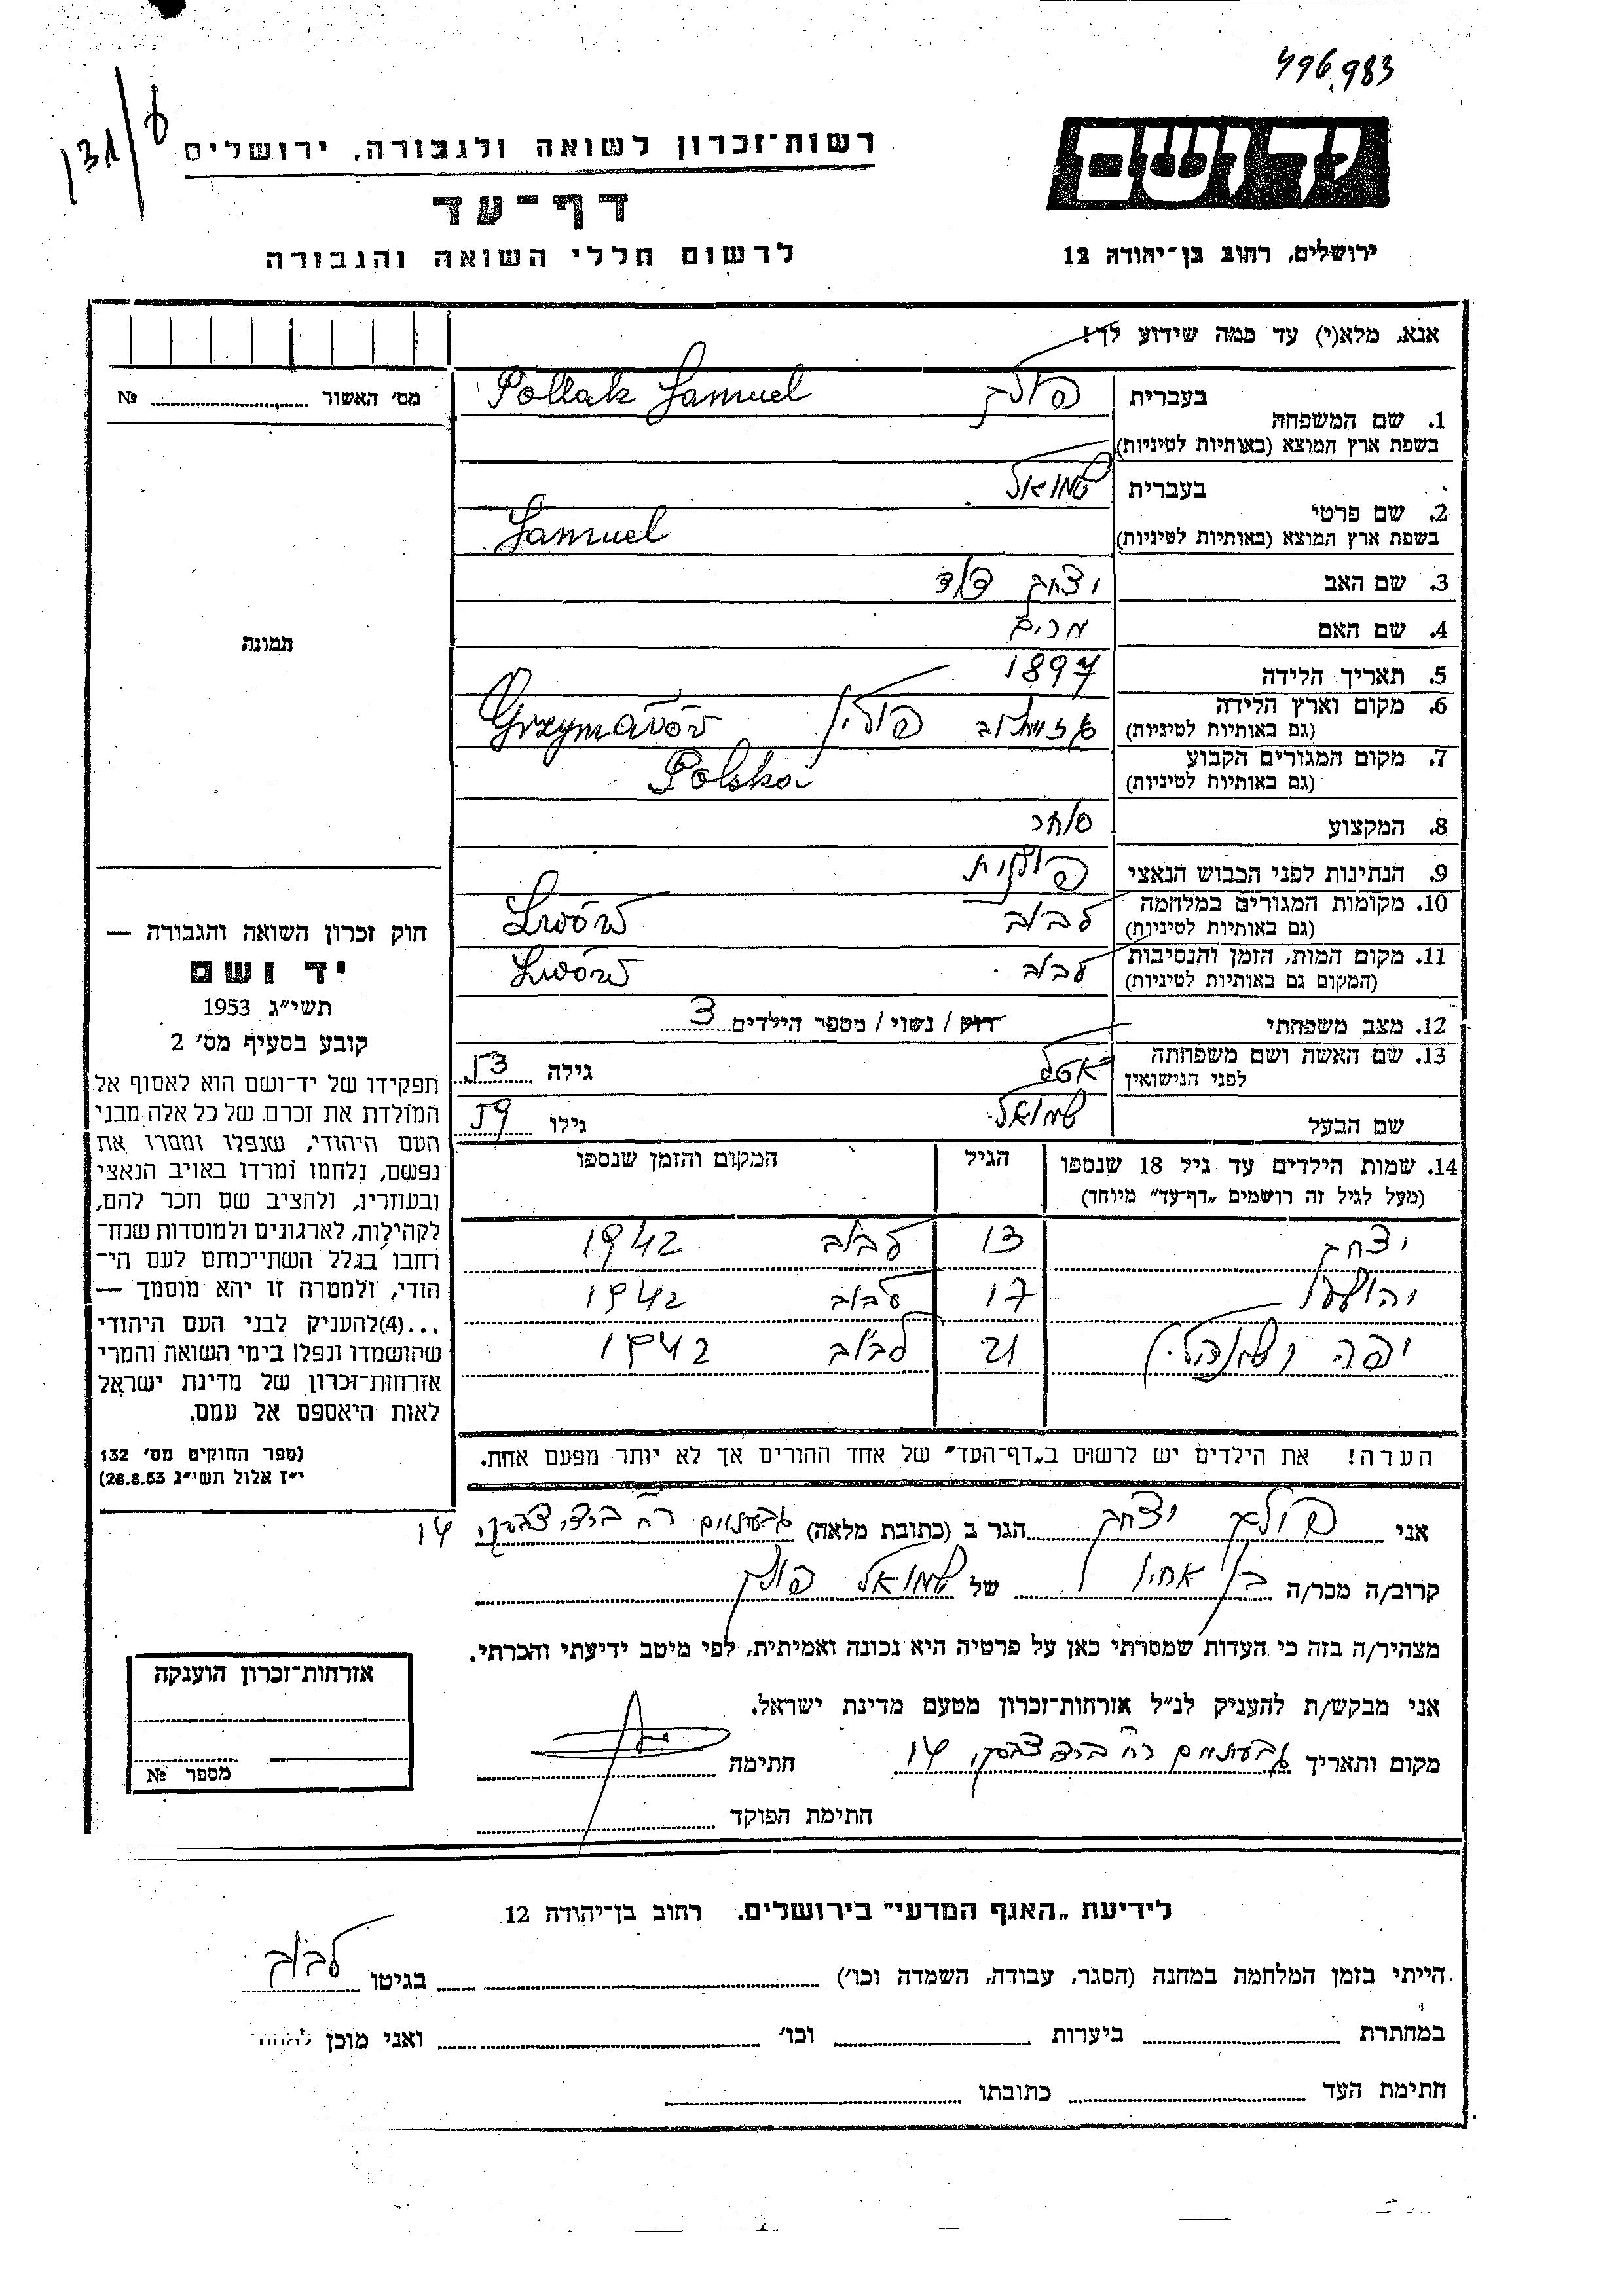 496.983
131/6
רשות-זכרון לשואה ולגבורה, ירושלים
יד ושם
דף-עד
לרשום חללי השואה והגבורה
ירושלים, רחוב בן-יהודה 12
אנא, מלא(י) עד כמה שידוע לך!
מס' האשור ........ №
1. שם המשפחה בעברית פולק Pollak Samuel
בשפת ארץ המוצא (באותיות לטיניות)
2. שם פרטי בעברית שמואל
בשפת ארץ המוצא (באותיות לטיניות) Samuel
3. שם האב יצחק דוד
4. שם האם מרים
5. תאריך הלידה 1897
6. מקום וארץ הלידה (גם באותיות לטיניות) פולין
7. מקום המגורים הקבוע (גם באותיות לטיניות) Polska
8. המקצוע סוחר
9. הנתינות לפני הכבוש הנאצי פולנית
10. מקומות המגורים במלחמה (גם באותיות לטיניות) לבוב Lwów
11. מקום המות, הזמן והנסיבות (המקום גם באותיות לטיניות) לבוב Lwów
12. מצב משפחתי רווק / נשוי / מספר הילדים 3
13. שם האשה ושם משפחתה לפני הנישואין אטל גילה 53
שם הבעל שמואל גילו 59
14. שמות הילדים עד גיל 18 שנספו הגיל המקום והזמן שנספו
(מעל לגיל זה רושמים „דף-עד" מיוחד)
יצחק 13 לבוב 1942
17 לבוב 1942
יפה 21 לבוב 1942
הערה! את הילדים יש לרשום ב„דף-העד" של אחד ההורים אך לא יותר מפעם אחת.
תמונה
חוק זכרון השואה והגבורה —
יד ושם
תשי"ג 1953
קובע בסעיף מס' 2
תפקידו של יד-ושם הוא לאסוף אל
המולדת את זכרם של כל אלה מבני
העם היהודי, שנפלו ומסרו את
נפשם, נלחמו ומרדו באויב הנאצי
ובעוזריו, ולהציב שם וזכר להם,
לקהילות, לארגונים ולמוסדות שנח-
רחבו בגלל השתייכותם לעם הי-
הודי, ולמטרה זו יהא מוסמך —
...(4)להעניק לבני העם היהודי
שהושמדו ונפלו בימי השואה והמרי
אזרחות-זכרון של מדינת ישראל
לאות היאספם אל עמם.
(ספר החוקים מס' 132
י"ז אלול תשי"ג 28.8.53)
אני פולק יצחק הגר ב (כתובת מלאה) גבעתיים רח' 14
קרוב/ה מכר/ה בן אחיו של שמואל פולק
מצהיר/ה בזה כי העדות שמסרתי כאן על פרטיה היא נכונה ואמיתית, לפי מיטב ידיעתי והכרתי.
אני מבקש/ת להעניק לנ"ל אזרחות-זכרון מטעם מדינת ישראל.
מקום ותאריך גבעתיים רח' 14 חתימה
חתימת הפוקד
אזרחות-זכרון הוענקה
מספר №
לידיעת „האגף המדעי" בירושלים. רחוב בן-יהודה 12
הייתי בזמן המלחמה במחנה (הסגר, עבודה, השמדה וכו') בגיטו לבוב
במחתרת ביערות וכו' ואני מוכן
חתימת העד כתובתו